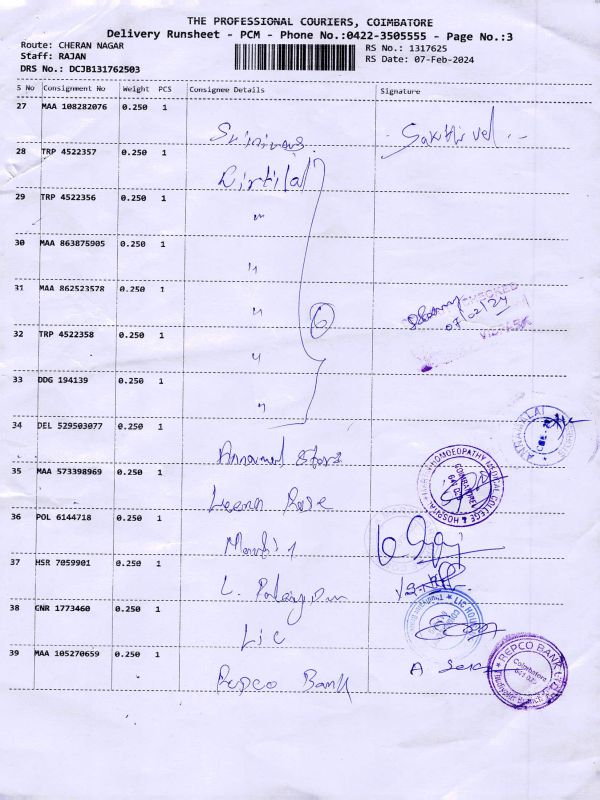 THE PROFESSIONAL COURIERS, COIMBATORE
Delivery Runsheet - PCM - Phone No.:0422-3505555 - Page No.:3
Route: CHERAN NAGAR
RS No.: 1317625
Staff: RAJAN
RS Date: 07-Feb-2024
DRS No.: DCJB131762503
S No Consignment No Weight PCS Consignee Details Signature
27 MAA 108282076 0.250 1
Sakthivel
28 TRP 4522357 0.250 1
29 TRP 4522356 0.250 1
"
30 MAA 863875905 0.250 1
"
31 MAA 862523578 0.250 1
"
6
07/02/24
32 TRP 4522358 0.250 1
"
33 DDG 194139 0.250 1
"
34 DEL 529503077 0.250 1
35 MAA 573398969 0.250 1
HOMOEOPATHY MEDICAL COLLEGE & HOSPITAL
COIMBATORE
36 POL 6144718 0.250 1
37 HSR 7059901 0.250 1
38 GNR 1773460 0.250 1
Lic
39 MAA 105270659 0.250 1
Repco Bank
REPCO BANK
Coimbatore